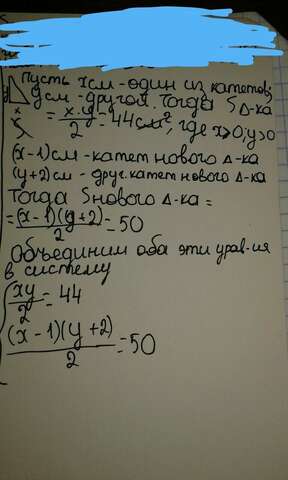 Пусть x см - один из катетов;
y см - другой. Тогда S Δ-ка
= x·y/2 = 44 см², где x>0; y>0
(x-1) см - катет нового Δ-ка
(y+2) см - друг. катет нового Δ-ка
Тогда S нового Δ-ка =
= (x-1)(y+2)/2 = 50
Объединим оба эти урав-ия
в систему
xy/2 = 44
(x-1)(y+2)/2 = 50